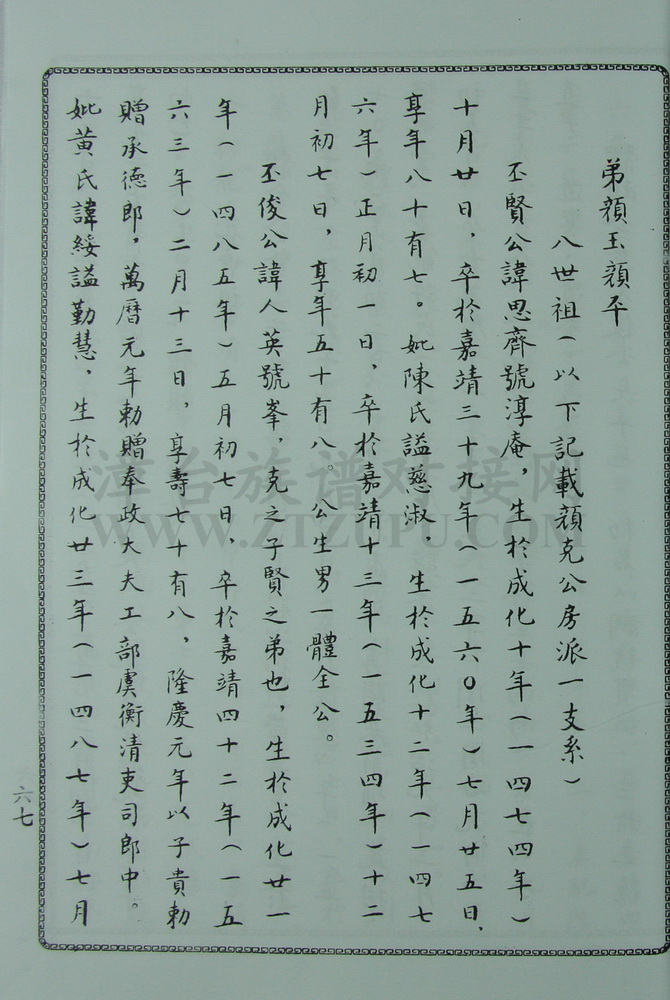 弟顔玉顔平
八世祖（以下記載顔克公房派一支系）
丕賢公諱思齊號淳庵，生於成化十年（一四七四年）
十月廿日，卒於嘉靖三十九年（一五六〇年）七月廿五日，
享年八十有七。妣陳氏謚慈淑，生於成化十二年（一四七
六年）正月初一日，卒於嘉靖十三年（一五三四年）十二
月初七日，享年五十有八。公生男一體全公。
丕俊公諱人英號峯，克之子賢之弟也，生於成化廿一
年（一四八五年）五月初七日，卒於嘉靖四十二年（一五
六三年）二月十三日，享壽七十有八，隆慶元年以子貴勅
贈承德郎，萬曆元年勅贈奉政大夫工部虞衡清吏司郎中。
妣黄氏諱綏謚勤慧，生於成化廿三年（一四八七年）七月
六七
漳台族谱对接网
WWW.ZTZUPU.COM